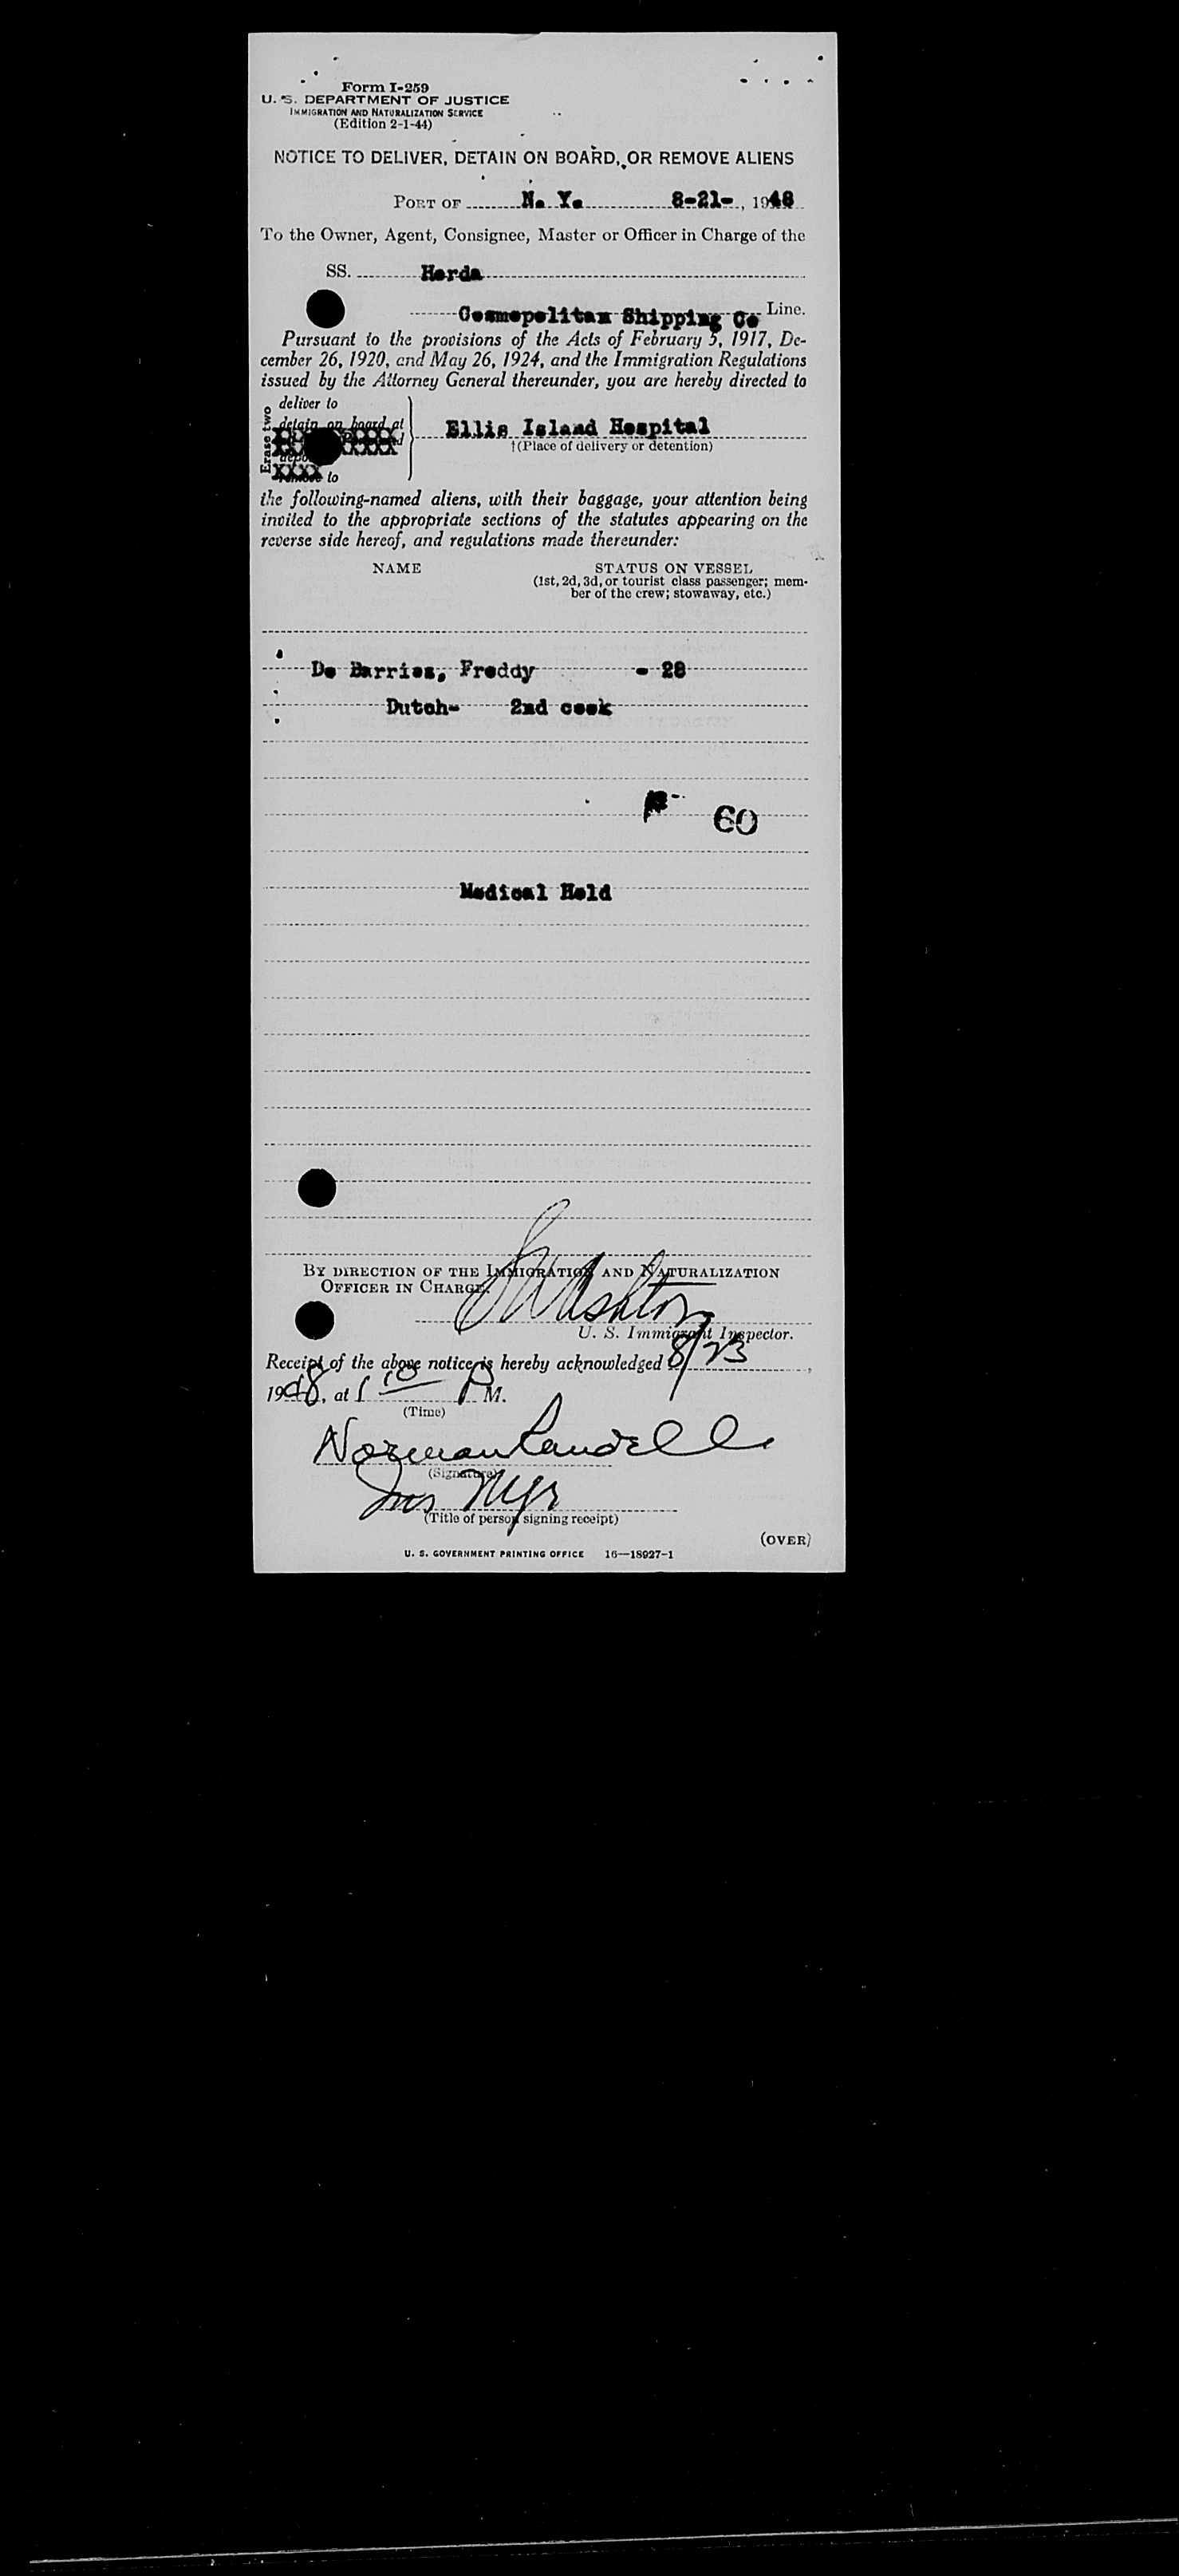 Form I-259
U. S. DEPARTMENT OF JUSTICE
IMMIGRATION AND NATURALIZATION SERVICE
(Edition 2-1-44)
NOTICE TO DELIVER, DETAIN ON BOARD, OR REMOVE ALIENS
PORT OF N. Y. 8-21-, 1948
To the Owner, Agent, Consignee, Master or Officer in Charge of the
SS. Herda
Cosmopolitan Shipping Co Line.
Pursuant to the provisions of the Acts of February 5, 1917, De-
cember 26, 1920, and May 26, 1924, and the Immigration Regulations
issued by the Attorney General thereunder, you are hereby directed to
Erase two
deliver to
detain on board at
to
Ellis Island Hospital
†(Place of delivery or detention)
the following-named aliens, with their baggage, your attention being
invited to the appropriate sections of the statutes appearing on the
reverse side hereof, and regulations made thereunder:
NAME STATUS ON VESSEL
(1st, 2d, 3d, or tourist class passenger; mem-
ber of the crew; stowaway, etc.)
De Barries, Freddy - 28
Dutch- 2nd cook
60
Medical Hold
BY DIRECTION OF THE IMMIGRATION AND NATURALIZATION
OFFICER IN CHARGE.
Ashton
U. S. Immigrant Inspector.
Receipt of the above notice is hereby acknowledged 8/23,
1948, at 1 10 P M.
(Time)
Norman Randell
(Signature)
Mgr
(Title of person signing receipt)
(OVER)
U. S. GOVERNMENT PRINTING OFFICE 16—18927-1